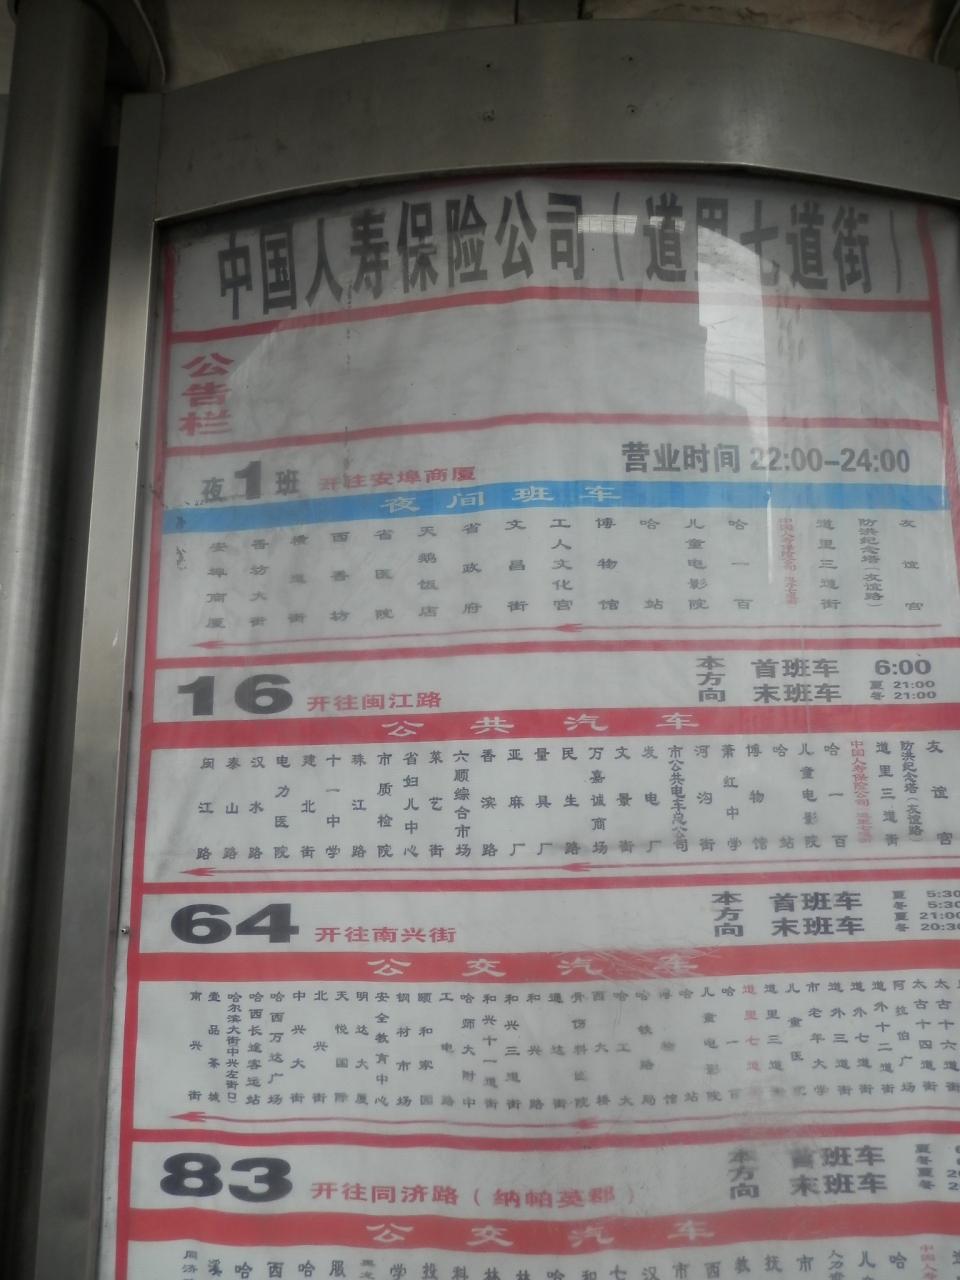 中国人寿保险公司（道里七道街）
公告栏
夜1班 开往安埠商厦 营业时间 22:00-24:00
夜间班车
安埠商厦 香坊大街 横道街 西香坊 省医院 天鹅饭店 省政府 文昌街 工人文化宫 博物馆 哈站 儿童电影院 哈一百 中国人寿保险公司 道里三道街 防洪纪念塔（友谊路） 友谊宫
16 开往闽江路 本方向 首班车 6:00
末班车 夏 21:00 冬 21:00
公共汽车
闽江路 泰山路 汉水路 电力医院 建北街 十一中学 珠江路 市质检院 省妇儿中心 菜艺街 六顺综合市场 香滨路 亚麻厂 量具厂 民生路 万嘉诚商场 文景街 发电厂 市公共电车总公司 河沟街 萧红中学 博物馆 哈站 儿童电影院 哈一百 中国人寿保险公司 道里七道街 道里三道街 防洪纪念塔（友谊路） 友谊宫
64 开往南兴街 本方向 首班车 夏 5:30 冬 5:30
末班车 夏 21:00 冬 20:30
公交汽车
南兴街 壹品茶城 哈尔滨大街(中兴左街口) 哈西长途客运站 哈西万达广场 中兴大街 北兴街 天悦国际 明达大厦 安全教育中心 钢材市场 颐和家园 工电路 哈师大附中 和兴十一道街 和兴三道街 和兴路 通达街 骨伤科医院 西大桥 哈工大 哈铁路局 博物馆 哈站 儿童电影院 哈一百 道里七道街 道里三道街 儿童医院 市老年大学 道外三道街 道外七道街 道外十二道街 阿拉伯广场 太古十四道街 太古十六道街
83 开往同济路（纳帕英郡） 本方向 首班车
末班车
公交汽车